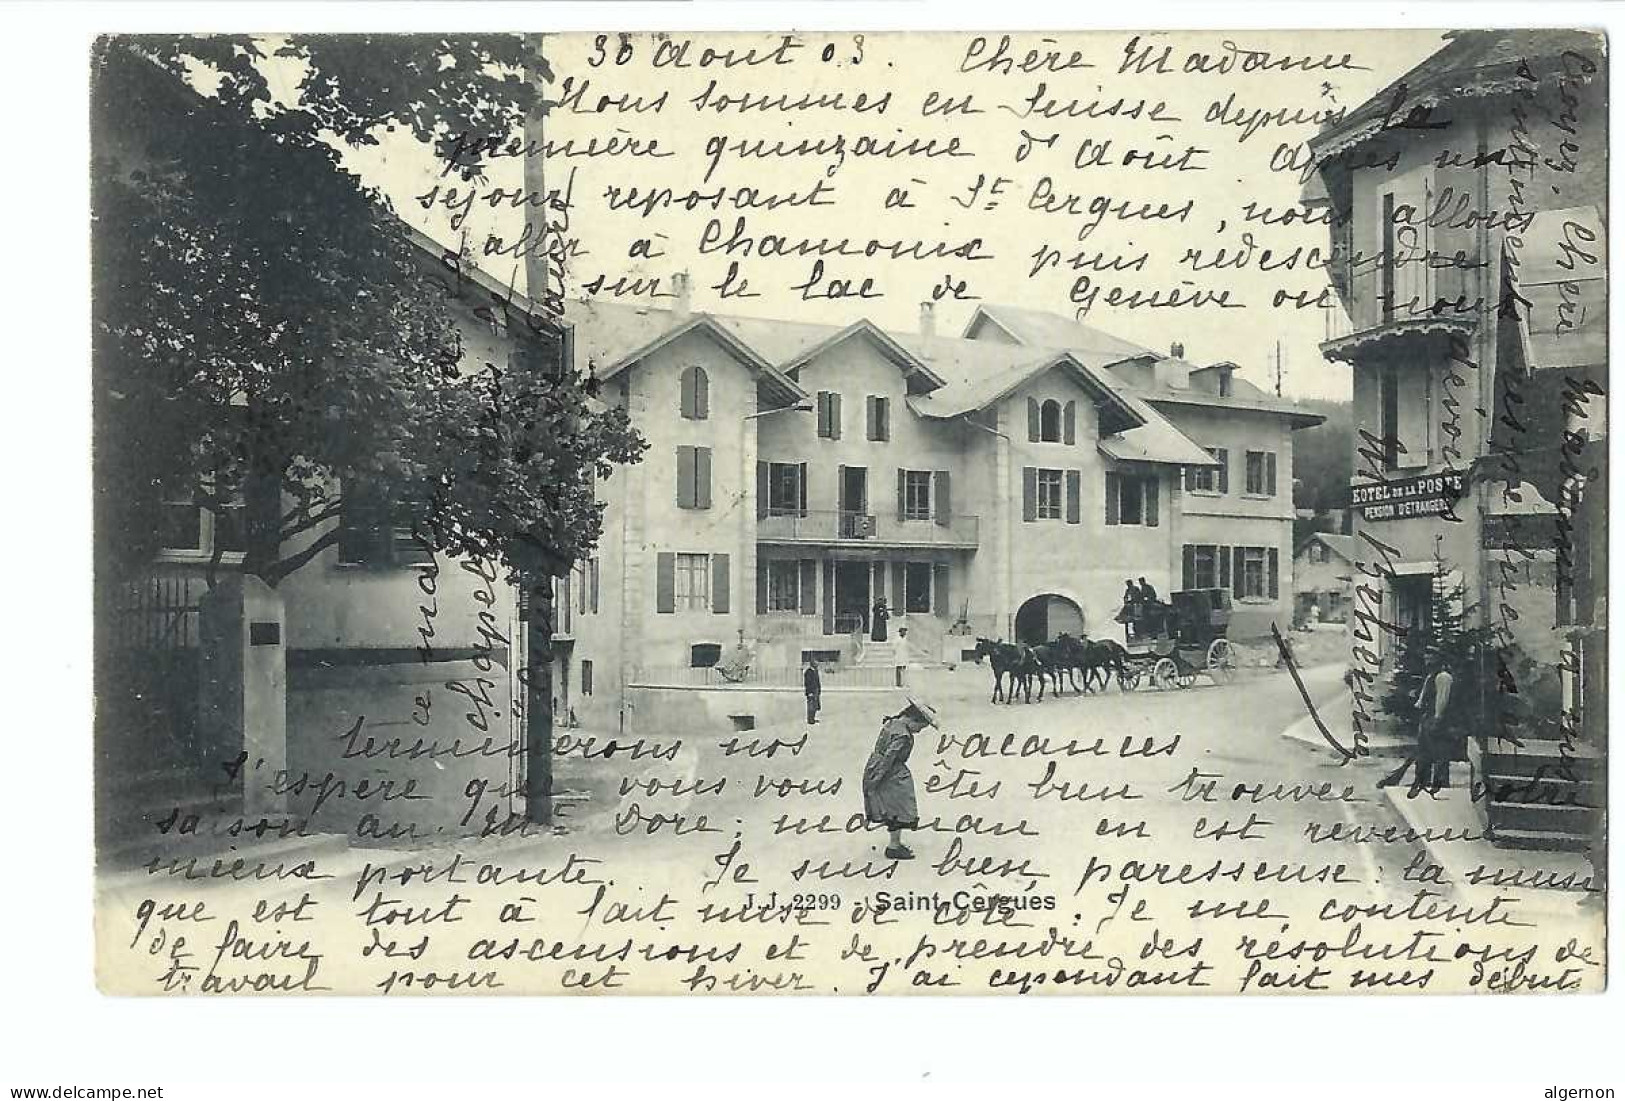 30 Août 03. Chère Madame
Nous sommes en Suisse depuis la
première quinzaine d'Août Après un
séjour reposant à St Cergues, nous allons
aller à Chamonix puis redescendre
sur le lac de Genève où nous
terminerons nos vacances.
J'espère que vous vous êtes bien trouvée de votre
saison au Mt Dore; maman en est revenue
mieux portante. Je suis bien paresseuse: la muse
que est tout à fait mise de côté: Je me contente
de faire des ascensions et de prendre des résolutions de
travail pour cet hiver. J'ai cependant fait mes débuts
ce matin à la
chapelle dans
Croyez, Chère Madame à mes
sentiments respectueux
dévoués
M Béhenne
HOTEL DE LA POSTE
PENSION D'ETRANGERS
J.J. 2299 - Saint-Cergues
www.delcampe.net
algernon